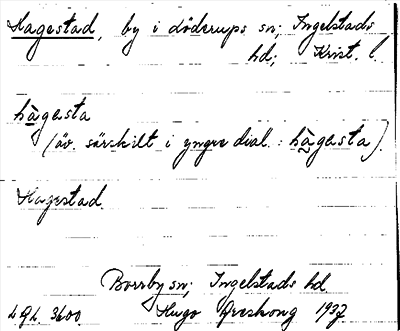 Hagestad, by i Löderups sn; Ingelstads
hd; Krist. l.
hàgasta
(äv. särskilt i yngre dial.: hàgasta).
Hagestad.
Borrby sn; Ingelstads hd
LGL 3600. Hugo Areskoug 1937